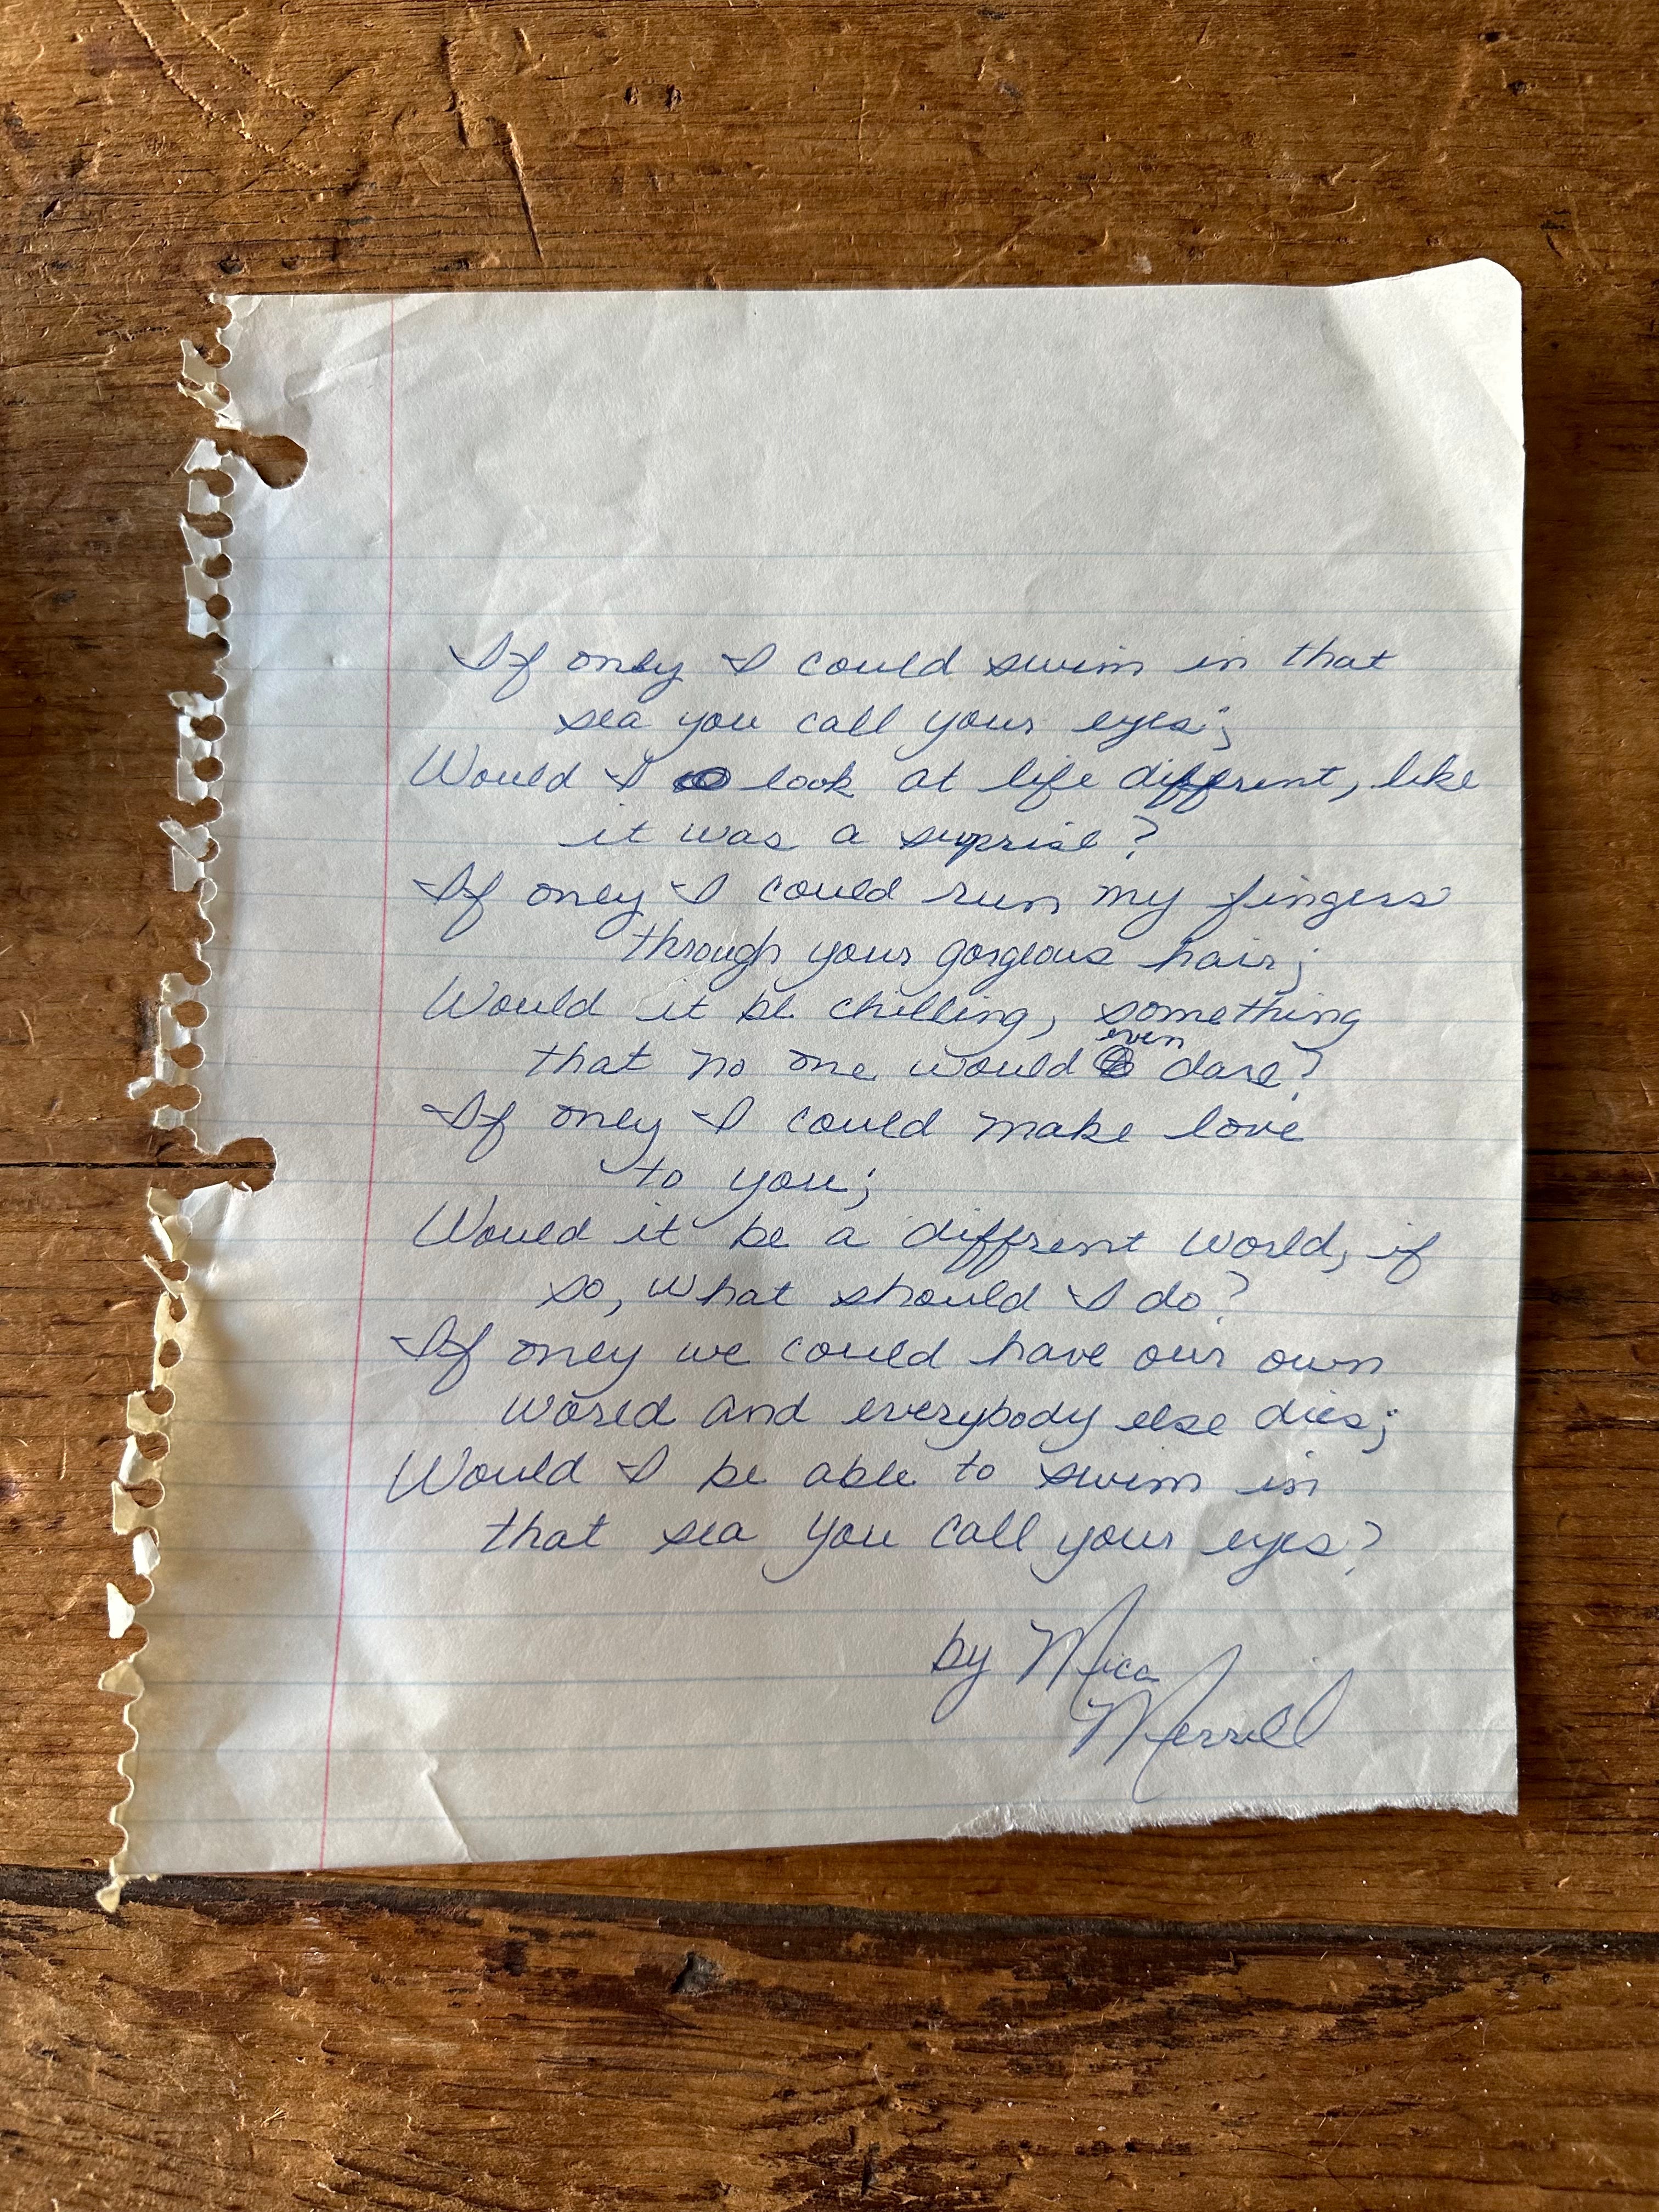 If only I could swim in that
sea you call your eyes;
Would I look at life diffrent, like
it was a suprise?
If only I could run my fingers
through your gorgeous hair;
Would it be chilling, something
that no one would even dare?
If only I could make love
to you;
Would it be a diffrent world, if
so, what should I do?
If only we could have our own
world and everybody else dies;
Would I be able to swim in
that sea you call your eyes?
by Mica
Merrill